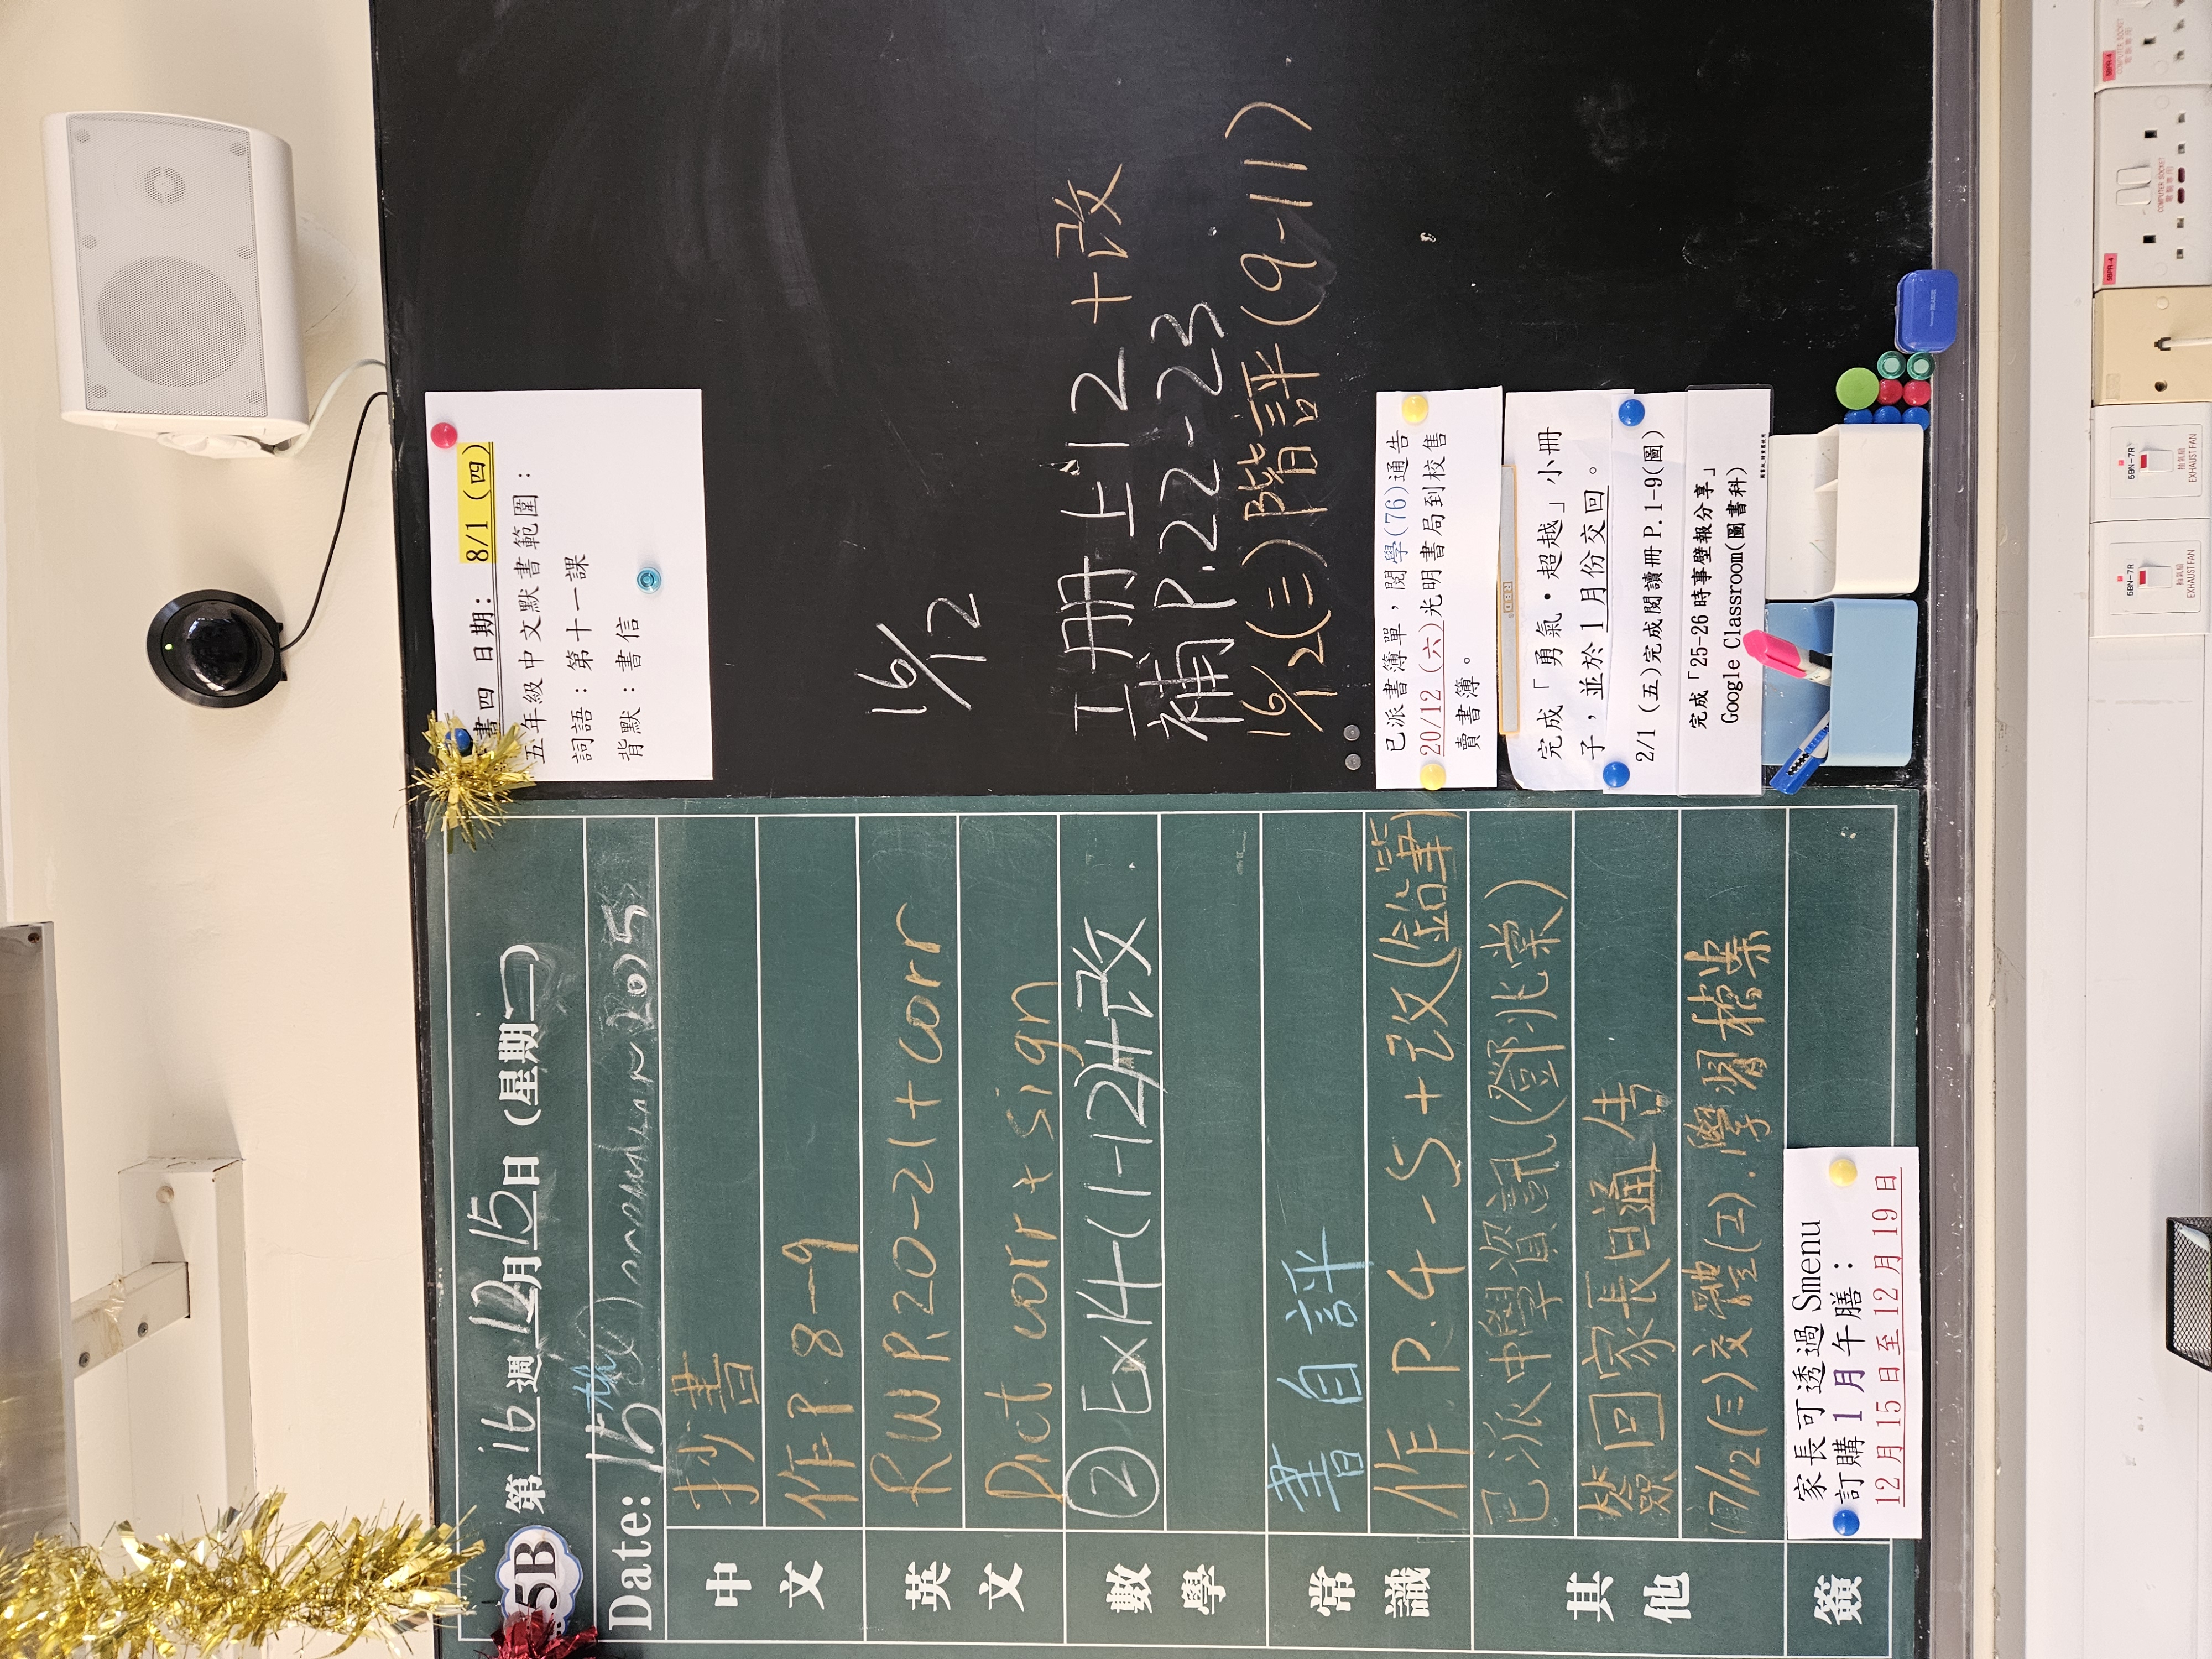 5B
第16週12月15日(星期一)
Date: 15th 2025
中文
抄書
作 P 8-9
英文
RWP.20-21+corr
Dict corr + sign
數學
② Ex14(1-12)+改
常識
書自評
作 P.4-5+改(鉛筆)
其他
已派中學資訊(鄧兆棠)
簽回家長日通告
17/12(三)交體(工).學習檔案
簽
家長可透過 Smenu
訂購 1 月午膳:
12 月 15 日至 12 月 19 日
書四 日期: 8/1 (四)
五年級中文默書範圍:
詞語:第十一課
背默:書信
16/12
工冊上12+改
補 P.22-23
16/12(二)階評(9-11)
已派書簿單,閱學(76)通告
20/12 (六)光明書局到校售
賣書簿。
完成「勇氣・超越」小冊
子,並於 1 月份交回。
2/1 (五)完成閱讀冊 P.1-9(圖)
完成「25-26 時事壁報分享」
Google Classroom(圖書科)
5BPR-4
COMPUTER SOCKET
電腦專用
5BPR-4
COMPUTER SOCKET
電腦專用
5BN-7R
抽氣扇
EXHAUST FAN
5BN-7R
抽氣扇
EXHAUST FAN